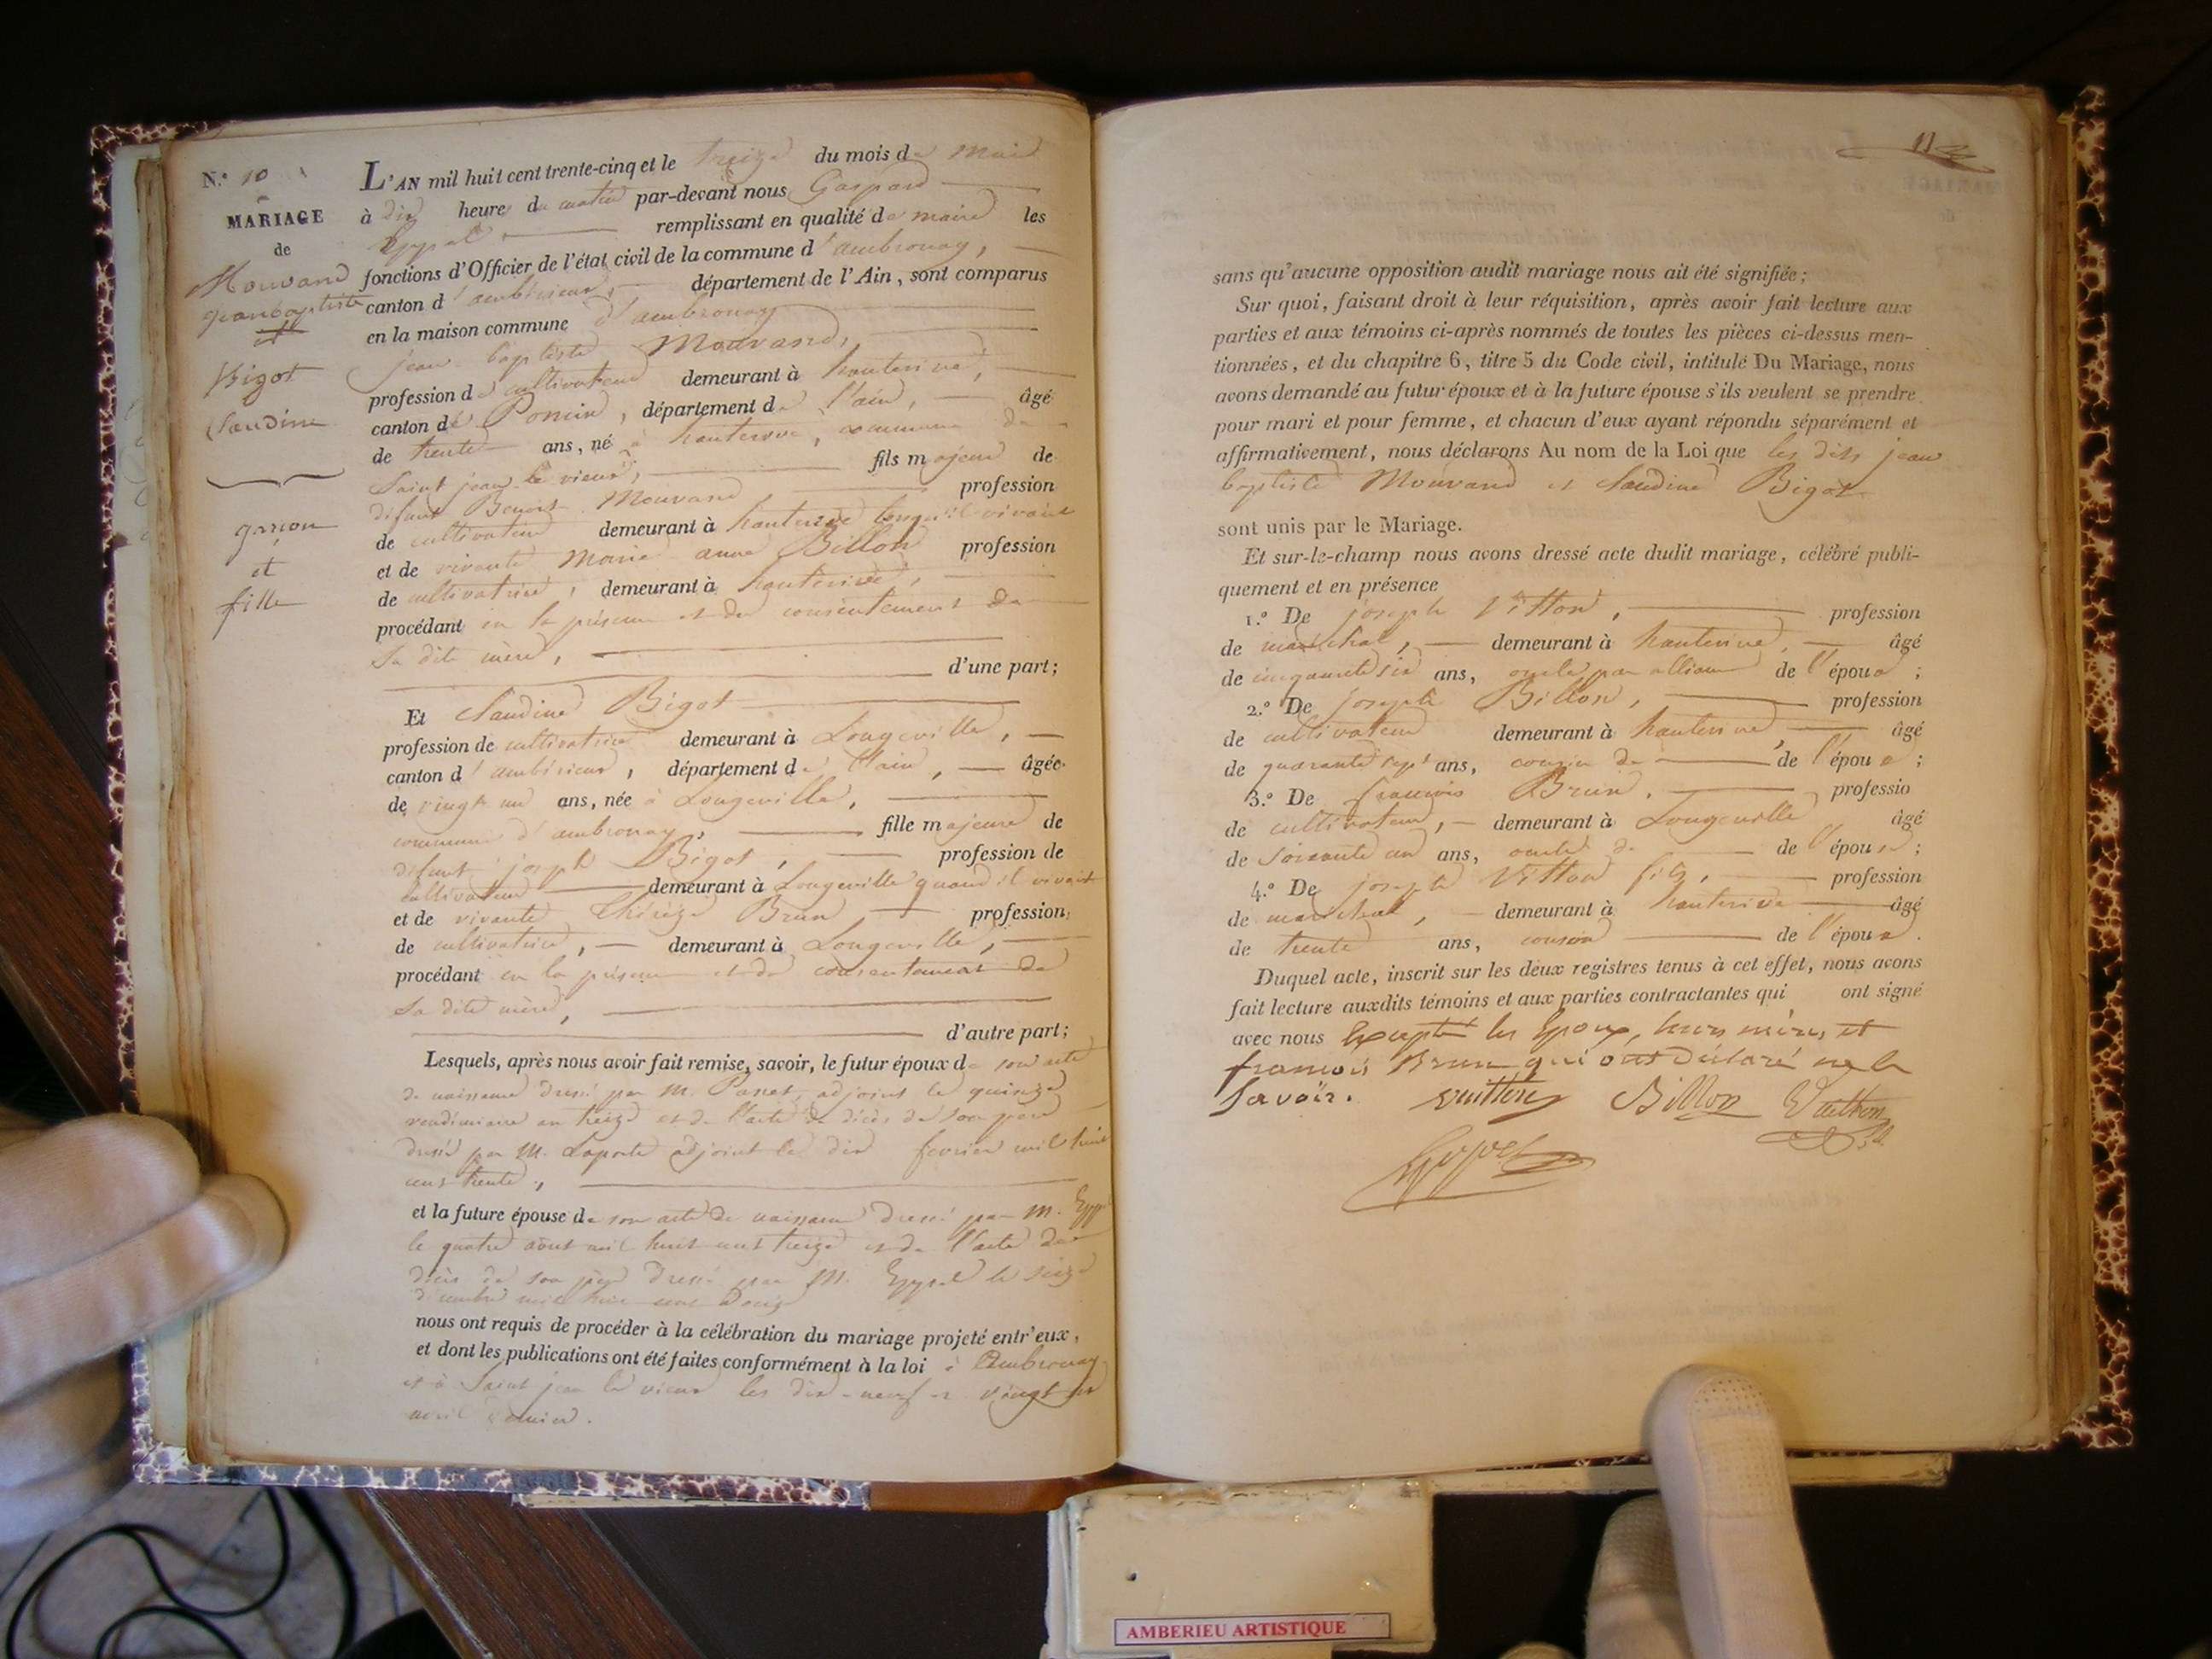 N.º 10
MARIAGE
de
Mouvand
jean baptiste
et
Bigot
Claudine
garçon
et
fille
L'AN mil huit cent trente-cinq et le treize du mois de Mai
à dix heures du matin par-devant nous Gaspard
Eyppel remplissant en qualité de maire les
fonctions d'Officier de l'état civil de la commune d'ambronay,
canton d'ambérieux, département de l'Ain, sont comparus
en la maison commune d'ambronay
jean baptiste Mouvand,
profession de cultivateur demeurant à hauterive,
canton de Poncin, département de l'ain, âgé
de trente ans, né à hauterive, commune de
Saint jean le vieux, fils majeur de
défunt Benoit Mouvand, profession
de cultivateur demeurant à hauterive lorsqu'il vivait
et de vivante Marie anne Billon profession
de cultivatrice, demeurant à hauterive,
procédant en la présence et du consentement de
Sa dite mère,
d'une part;
Et Claudine Bigot
profession de cultivatrice demeurant à Longeville,
canton d'ambérieux, département de l'ain, âgée
de vingt un ans, née à Longeville,
commune d'ambronay, fille majeure de
défunt joseph Bigot, profession de
cultivateur demeurant à Longeville quand il vivait
et de vivante Thérèze Brun, profession
de cultivatrice, demeurant à Longeville,
procédant en la présence et du consentement de
Sa dite mère,
d'autre part;
Lesquels, après nous avoir fait remise, savoir, le futur époux de son acte
de naissance dressé par M. adjoint le quinze
vendimiaire an treize et de l'acte de décès de son père
dressé par M. Laporte adjoint le dix fevrier mil huit
cent trente,
et la future épouse de son acte de naissance dressé par M. Eyppel
le quatre août mil huit cent treize et de l'acte de
décès de son père dressé par M. Eyppel le seize
décembre mil huit cent
nous ont requis de procéder à la célébration du mariage projeté entr'eux,
et dont les publications ont été faites conformément à la loi à Ambronay
et à Saint jean le vieux les dix-neuf et vingt six
avril dernier.
11
sans qu'aucune opposition audit mariage nous ait été signifiée;
Sur quoi, faisant droit à leur réquisition, après avoir fait lecture aux
parties et aux témoins ci-après nommés de toutes les pièces ci-dessus men-
tionnées, et du chapitre 6, titre 5 du Code civil, intitulé Du Mariage, nous
avons demandé au futur époux et à la future épouse s'ils veulent se prendre
pour mari et pour femme, et chacun d'eux ayant répondu séparément et
affirmativement, nous déclarons Au nom de la Loi que les dits jean
baptiste Mouvand et Claudine Bigot
sont unis par le Mariage.
Et sur-le-champ nous avons dressé acte dudit mariage, célébré publi-
quement et en présence
1.º De joseph Vitton, profession
de maréchal, demeurant à hauterive, âgé
de cinquante six ans, oncle par alliance de l'époux;
2.º De joseph Billon, profession
de cultivateur demeurant à hauterive, âgé
de quarante sept ans, cousin de l'époux;
3.º De françois Brun, professio
de cultivateur, demeurant à Longeville âgé
de soixante un ans, oncle de de l'épouse;
4.º De joseph Vitton fils, profession
de maréchal, demeurant à hauterive âgé
de trente ans, cousin de l'époux.
Duquel acte, inscrit sur les deux registres tenus à cet effet, nous avons
fait lecture auxdits témoins et aux parties contractantes qui ont signé
avec nous Excepté les Epoux, leurs mères et
françois Brun qui ont déclaré ne le
Savoir. Vuitton Billon Vuitton
fils
Eyppel
AMBERIEU ARTISTIQUE